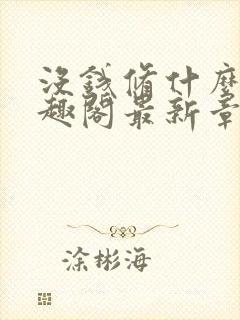 没錢脩什麼
趣閣最新章
涂彬海